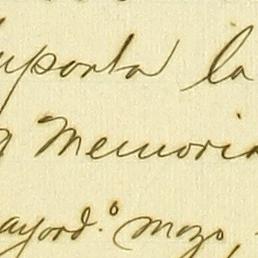 uporta la
a Memoria
ayord.° mozo,